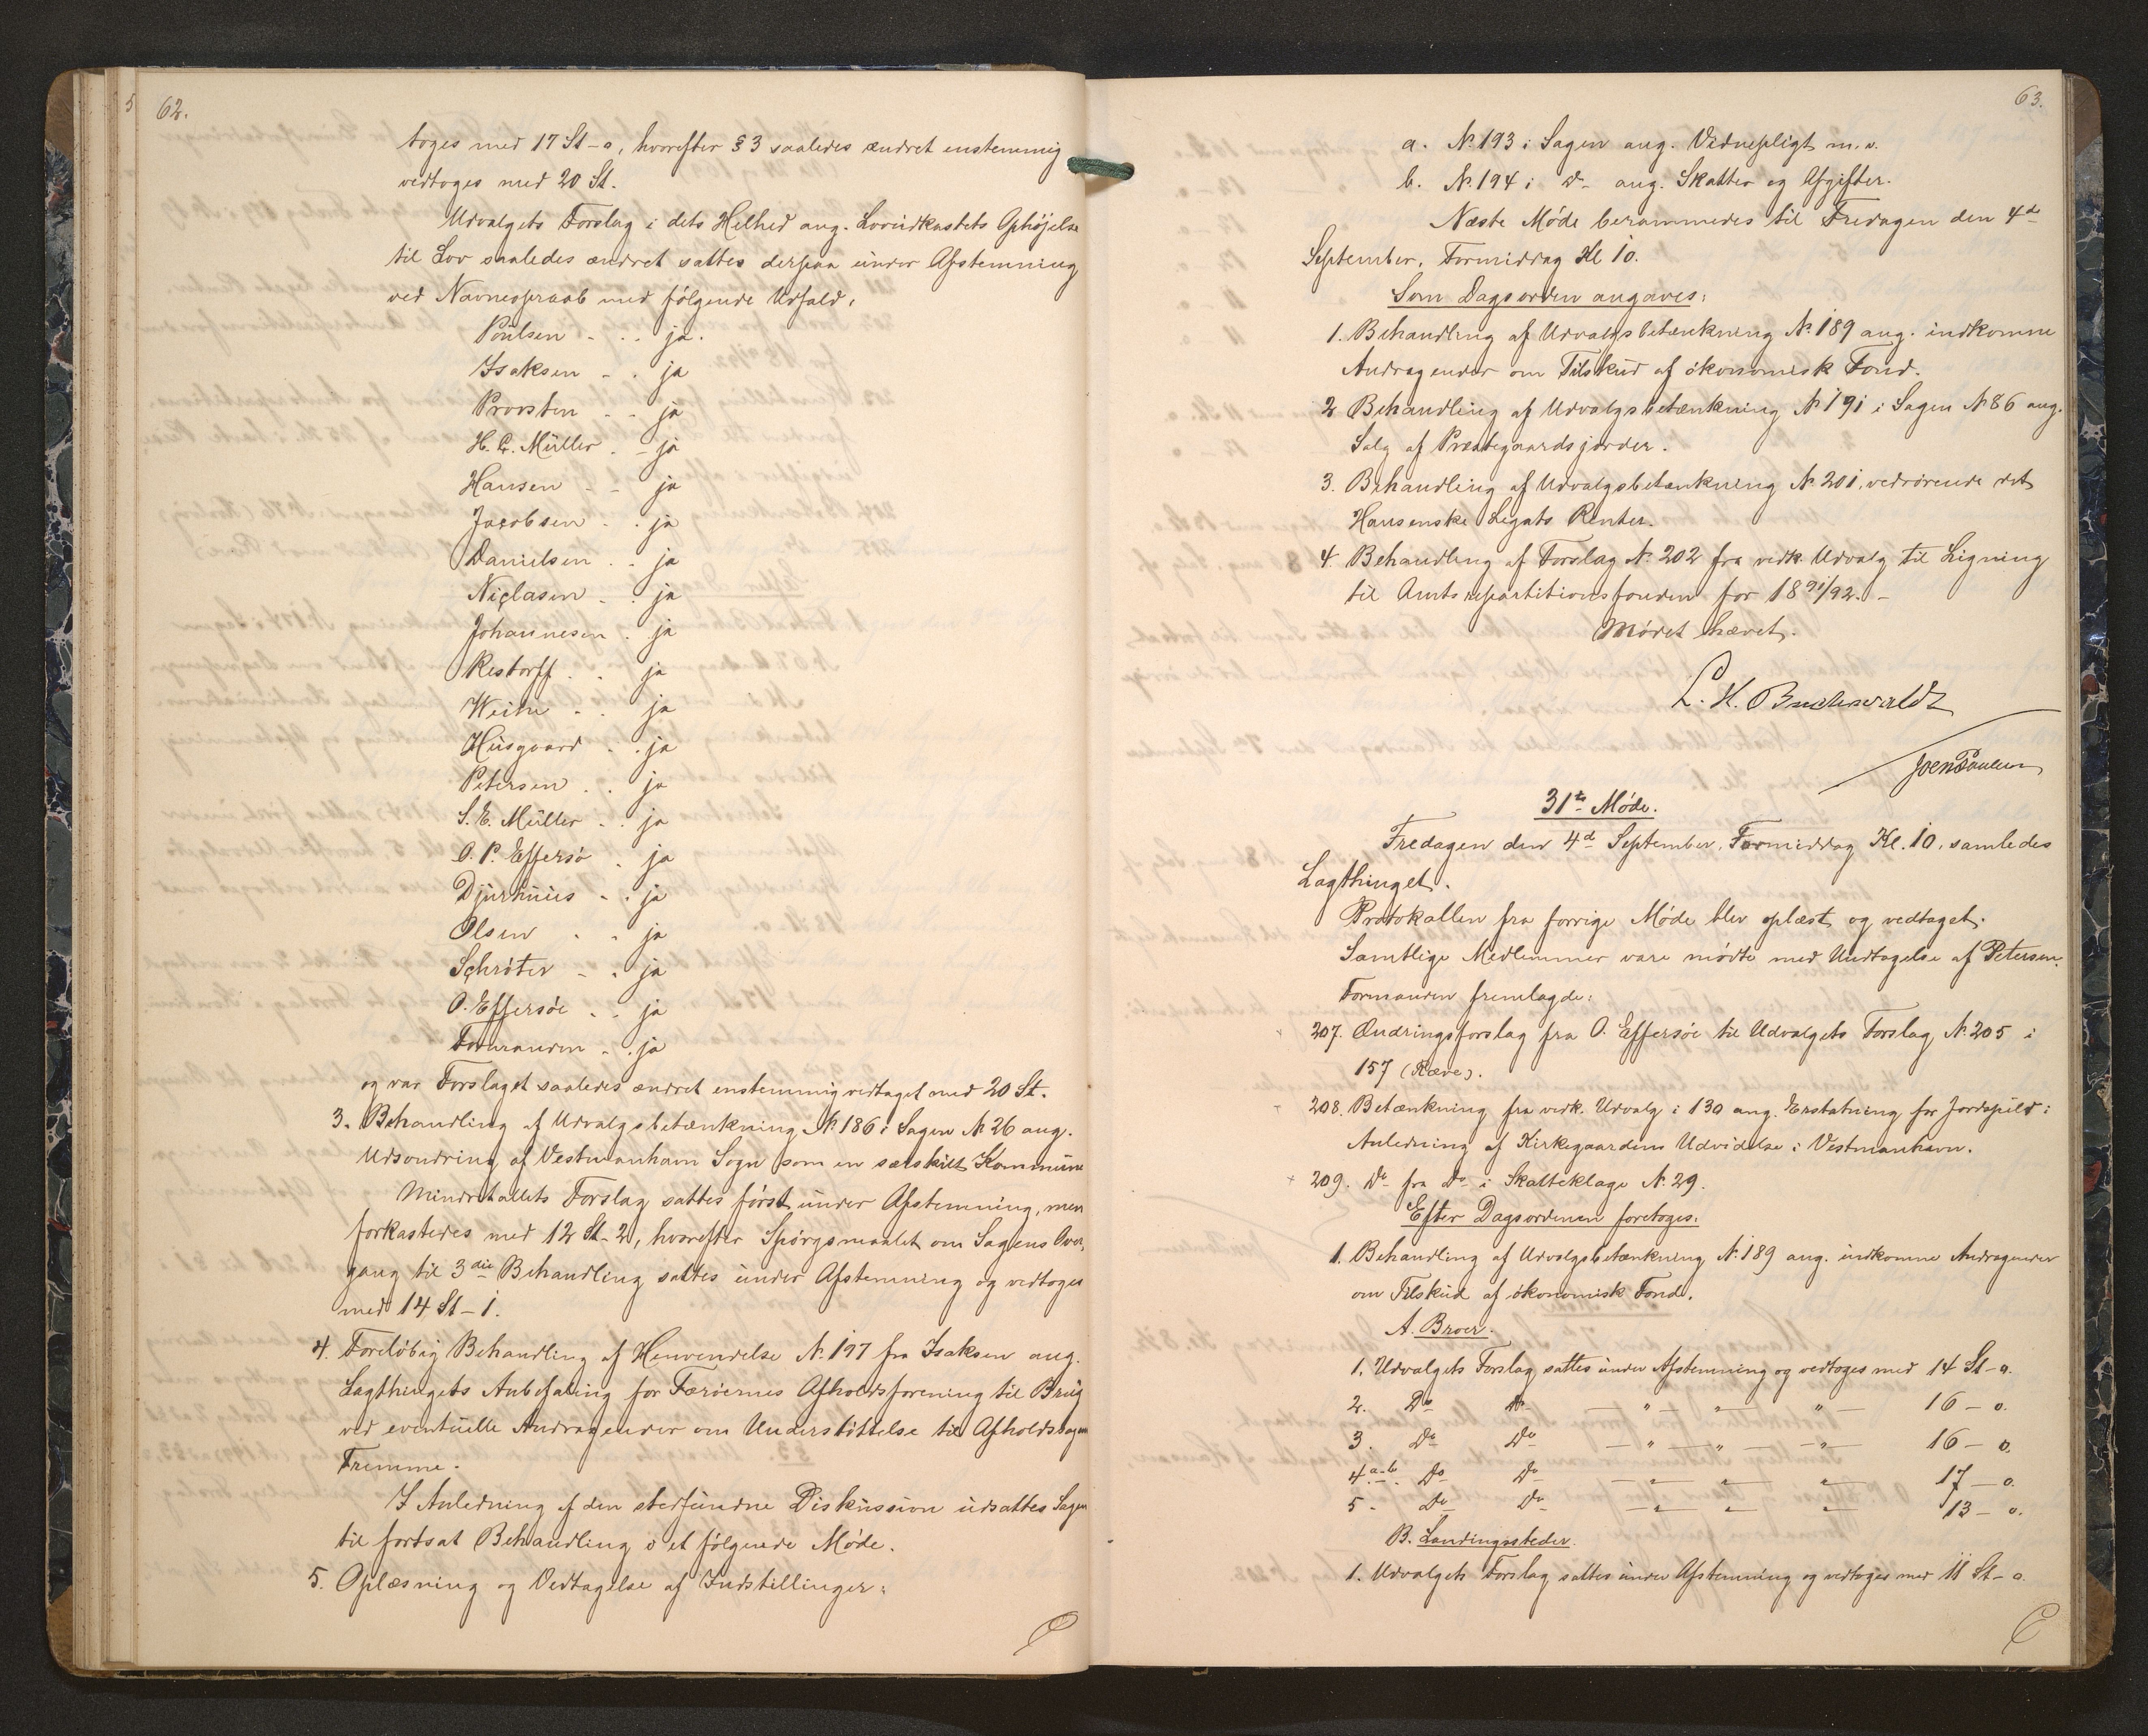 62.
toges med 17 St - o, hvorefter § 3 saaledes ændret enstemmig
vedtoges med 20 St.
Udvalgets Forslag i dets Helhed ang. Lovudkastets Ophøjelse
til Lov saaledes ændret sattes derpaa under Afstemning
ved Navneopraab med følgende Udfald:
Poulsen - . . ja.
Isaksen - . ja
Provsten - - ja
H. C. Müller . - ja
Hansen - - ja
Jacobsen - . ja
Danielsen . . ja
Niclasen - . ja
Johannesen . ja
Restorff . . ja
Weihe - . ja
Husgaard - . ja
Petersen . . ja
S. E. Müller - . ja
O. P. Effersø . ja
Djurhuus - . ja
Olsen . . ja
Schrøter - . ja
O. Effersøe . . ja
Formanden - . ja
og var Forslaget saaledes ændret enstemmig vedtaget med 20 St.
3. Behandling af Udvalgsbetænkning № 186 i Sagen № 26 ang.
Udsondring af Vestmanhavn Sogn som en særskilt Kommune
Mindretallets Forslag sattes først under Afstemning, men
forkastedes med 12 St - 2, hvorefter Spørgsmaalet om Sagens Over-
gang til 3die Behandling sattes under Afstemning og vedtoges
med 14 St - 1.
4. Foreløbig Behandling af Henvendelse № 197 fra Isaksen ang.
Lagthingets Anbefaling for Færøernes Afholdsforening til Brug
ved eventuelle Andragender om Understøttelse til Afholdssagens
Fremme.
I Anledning af den stedfundne Diskussion udsattes Sagen
til fortsat Behandling i et følgende Møde.
5. Oplæsning og Vedtagelse af Indstillinger:
63.
a. № 193 i Sagen ang. Vidnepligt m. v.
b. № 194 i do ang. Skatter og Afgifter.
Næste Møde berammedes til Fredagen den 4de
September, Formiddag Kl 10.
Som Dagsorden angaves:
1. Behandling af Udvalgsbetænkning № 189 ang. indkomne
Andragender om Tilskud af økonomisk Fond.
2 Behandling af Udvalgsbetænkning № 191 i Sagen № 86 ang.
Salg af Præstegaardsjorder.
3. Behandling af Udvalgsbetænkning № 201, vedrørende det
Hansenske Legats Renter.
4. Behandling af Forslag № 202 fra vedk. Udvalg til Ligning
til Amtsrepartitionsfonden for 1891/92. -
Mødet hævet.
L. H. Buchwaldt
Joen Poulsen
31te Møde.
Fredagen den 4de September, Formiddag Kl. 10, samledes
Lagthinget.
Protokollen fra forrige Møde blev oplæst og vedtaget.
Samtlige Medlemmer vare mødte med Undtagelse af Petersen.
Formanden fremlagde:
207. Ændringsforslag fra O. Effersøe til Udvalgets Forslag № 205 i
157 (Ræve).
208. Betænkning fra vedk. Udvalg i 130 ang. Erstatning for Jordspild i
Anledning af Kirkegaardens Udvidelse i Vestmanhavn.
209. Do fra Do i Skatteklage № 29.
Efter Dagsordenen foretoges:
1. Behandling af Udvalgsbetænkning № 189 ang. indkomne Andragender
om Tilskud af økonomisk Fond.
A. Broer.
1. Udvalgets Forslag sattes under Afstemning og vedtoges med 14 St - o.
2. Do Do — " — " — " — 16 - o.
3. Do Do — " — " — " — 16 - o.
4 a-b. Do Do — " — " — " — 17 - o.
5 - Do Do — " — " — " — 13 - o.
B. Landingssteder.
1. Udvalgets Forslag sattes under Afstemning og vedtoges med 11 St - o.